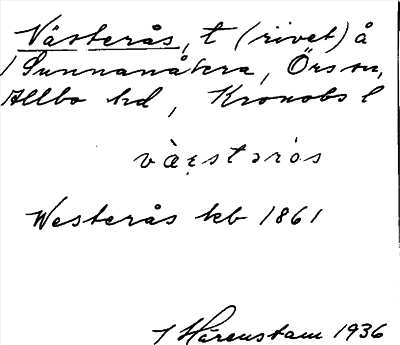 Västerås, t (rivet) å
Sunnanåkra, Örs sn,
Allbo hd, Kronobs l
Westerås kb 1861
Hårenstam 1936